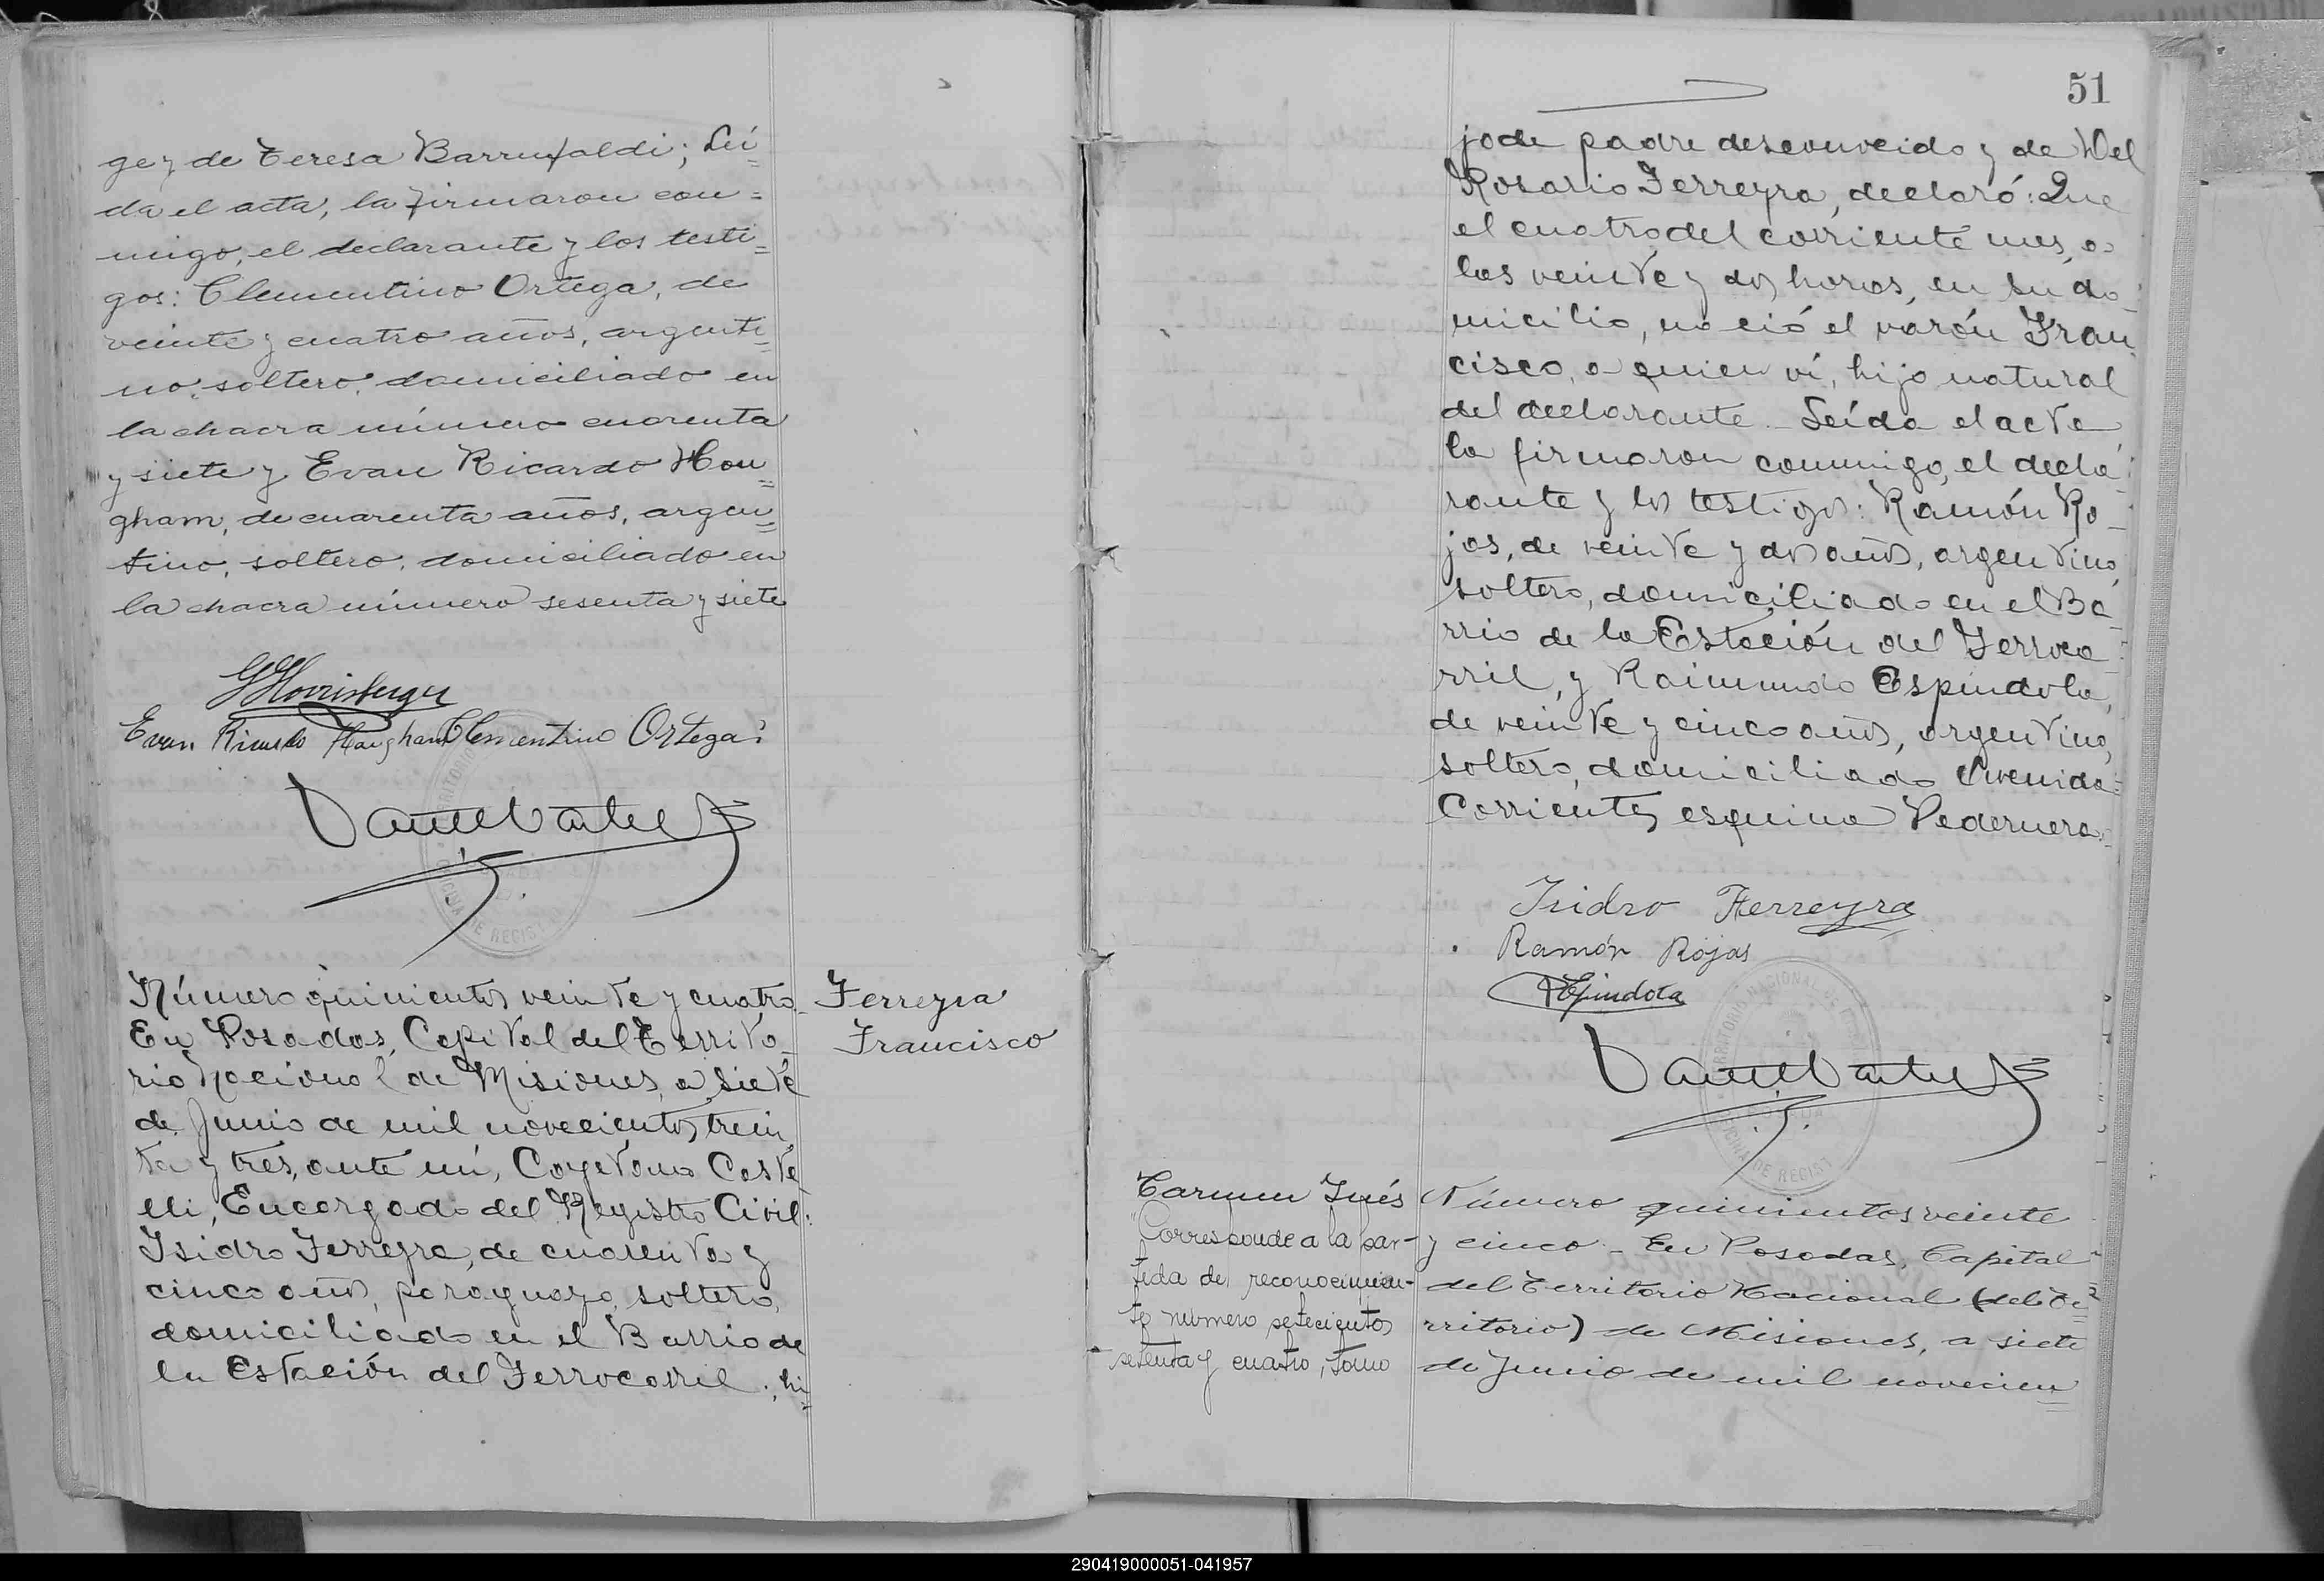 ge y de Teresa Barrufaldi; Leí=
da el acta, la firmaron con=
migo, el declarante y los testi=
gos: Clementino Ortega, de
veinte y cuatro años, argenti=
no, soltero, domiciliado en
la chacra número cuarenta
y siete y Evan Ricardo Hou=
gham, de cuarenta años, argen=
tino, soltero, domiciliado en
la chacra número sesenta y siete
Evan Ricardo Hougham Clementino Ortega
Número quinientos veinte y cuatro_
En Posadas, Capital del Territo_
rio Nacional de Misiones, a siete
de Junio de mil novecientos trein_
ta y tres, ante mí, Cayetano Caste_
lli, Encargado del Registro Civil:
Isidro Ferreyra, de cuarenta y
cinco años, paraguayo, soltero,
domiciliado en el Barrio de
la Estación del Ferrocarril; hi=
Ferreyra
Francisco
51
jo de padre desconocido y de Del
Rosario Ferreyra, declaró: Que
el cuatro del corriente mes, a
las veinte y dos horas, en su do_
micilio, nació el varón Fran_
cisco, a quien ví, hijo natural
del declarante. Leída el acta,
la firmaron conmigo, el decla_
rante y los testigos: Ramón Ro_
jas, de veinte y dos años, argentino,
soltero, domiciliado en el Ba_
rrio de la Estación del Ferroca_
rril, y Raimundo Espíndola,
de veinte y cinco años, argentino,
soltero, domiciliado Avenida
Corrientes esquina Pedernera.
Isidro Ferreyra
Ramón Rojas
REspindola
Carmen Inés
Corresponde a la par-
tida de reconocimien-
to número setecientos
setenta y cuatro, tomo
Número quinientos veinte
y cinco._ En Posadas, Capital
del Territorio Nacional (del Te=
rritorio) de Misiones, a siete
de Junio de mil novecien=
290419000051-041957